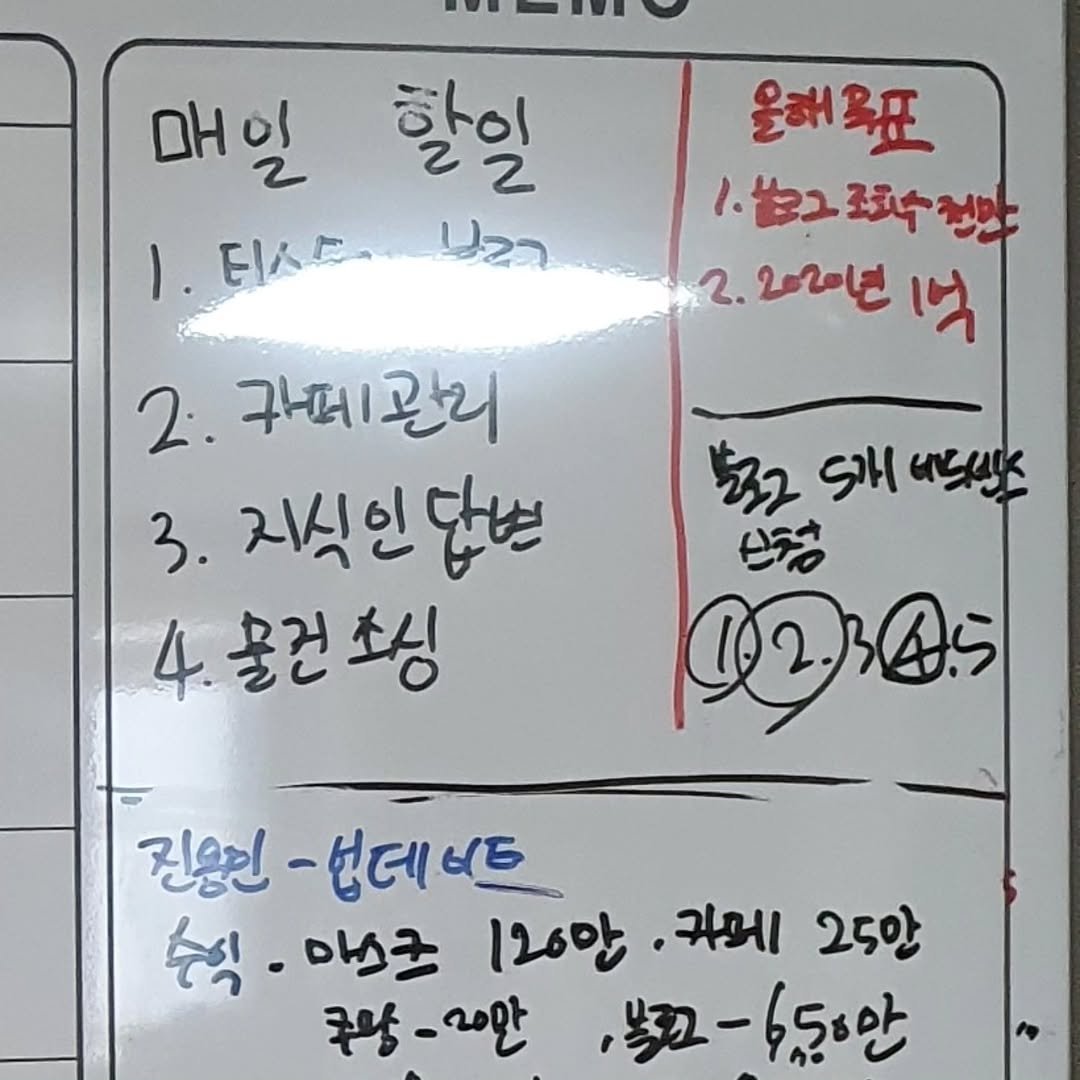 MEMO
매일 할일
1. 티스토리 블로그
2. 카페관리
3. 지식인답변
4. 물건소싱
올해목표
1. 블로그 조회수 천만
2. 2020년 1억
블로그 5개 애드센스
신청
1. 2. 3 4. 5
진용민 - 업데이트
수익 . 마스크 120만 . 카페 25만
쿠팡 - 20만 , 블로그 - 650만